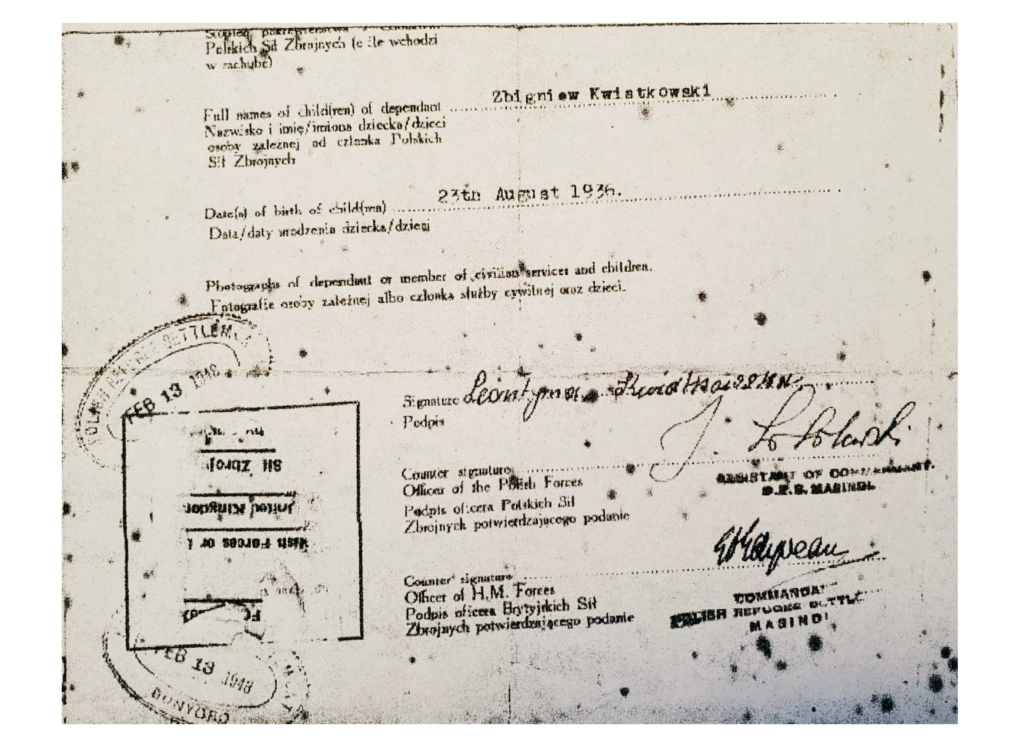 Polskich Sił Zbrojnych (o ile wchodzi
w rachubę)
Full names of child(ren) of dependant Zbigniew Kwiatkowski
Nazwisko i imię/imiona dziecka/dzieci
osoby zależnej od członka Polskich
Sił Zbrojnych
Date(s) of birth of child(ren) 23th August 1936.
Data/daty urodzenia dziecka/dzieci
Photographs of dependant or member of civilian services and children.
Fotografie osoby zależnej albo członka służby cywilnej oraz dzieci.
FEB 13 1948
Signature Leontyna
Podpis
Sił Zbroj
United Kingdom
Counter signature
Officer of the Polish Forces
Podpis oficera Polskich Sił
Zbrojnych potwierdzającego podanie
ASSISTANT OF COMMANDANT.
P.R.S. MASINDI.
Counter signature
Officer of H.M. Forces
Podpis oficera Brytyjskich Sił
Zbrojnych potwierdzającego podanie
COMMANDANT
POLISH REFUGEE SETTLE
MASINDI
FEB 13 1948
BUNYORO